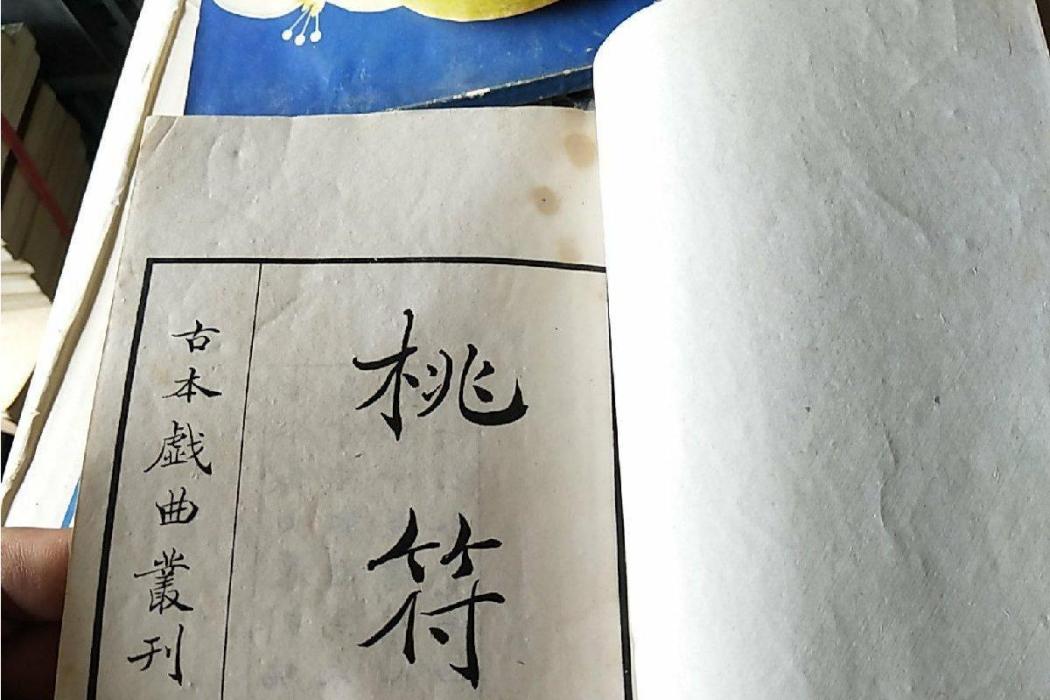 桃符
古本戯曲叢刊